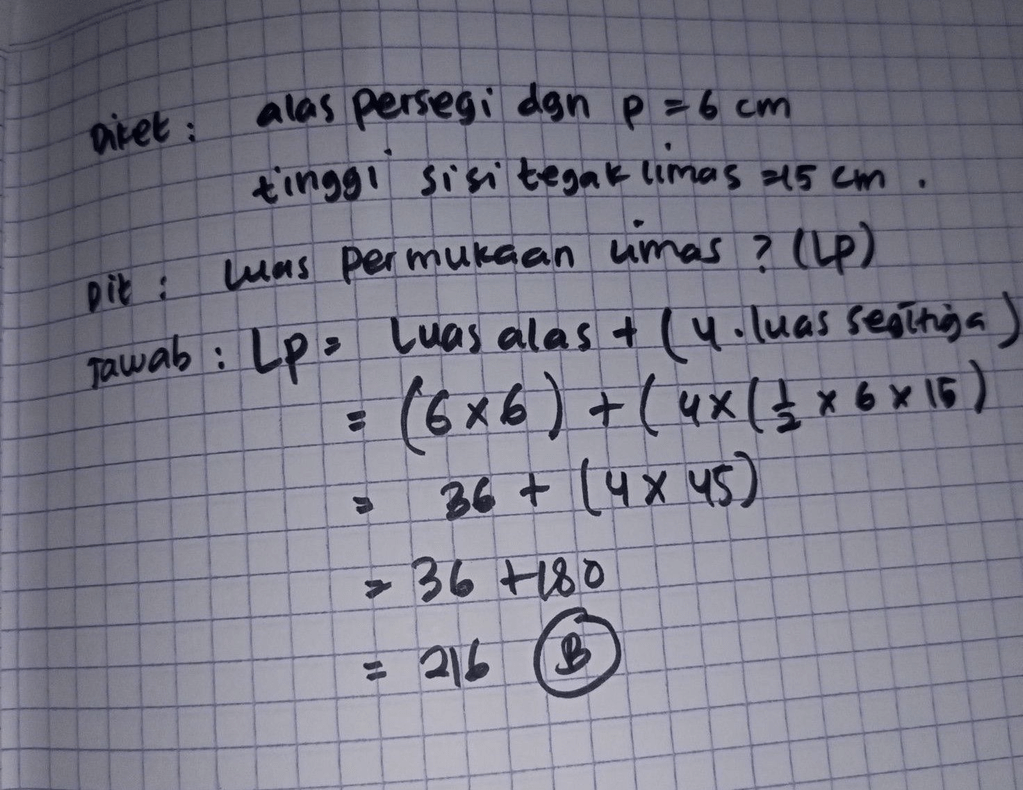 Diket : alas persegi dgn p = 6 cm
tinggi sisi tegak limas = 15 cm .
Dit : Luas permukaan limas ? (Lp)
Jawab : Lp = Luas alas + (4 . luas segitiga)
= (6 x 6) + (4 x (1/2 x 6 x 15)
= 36 + (4 x 45)
= 36 + 180
= 216 B